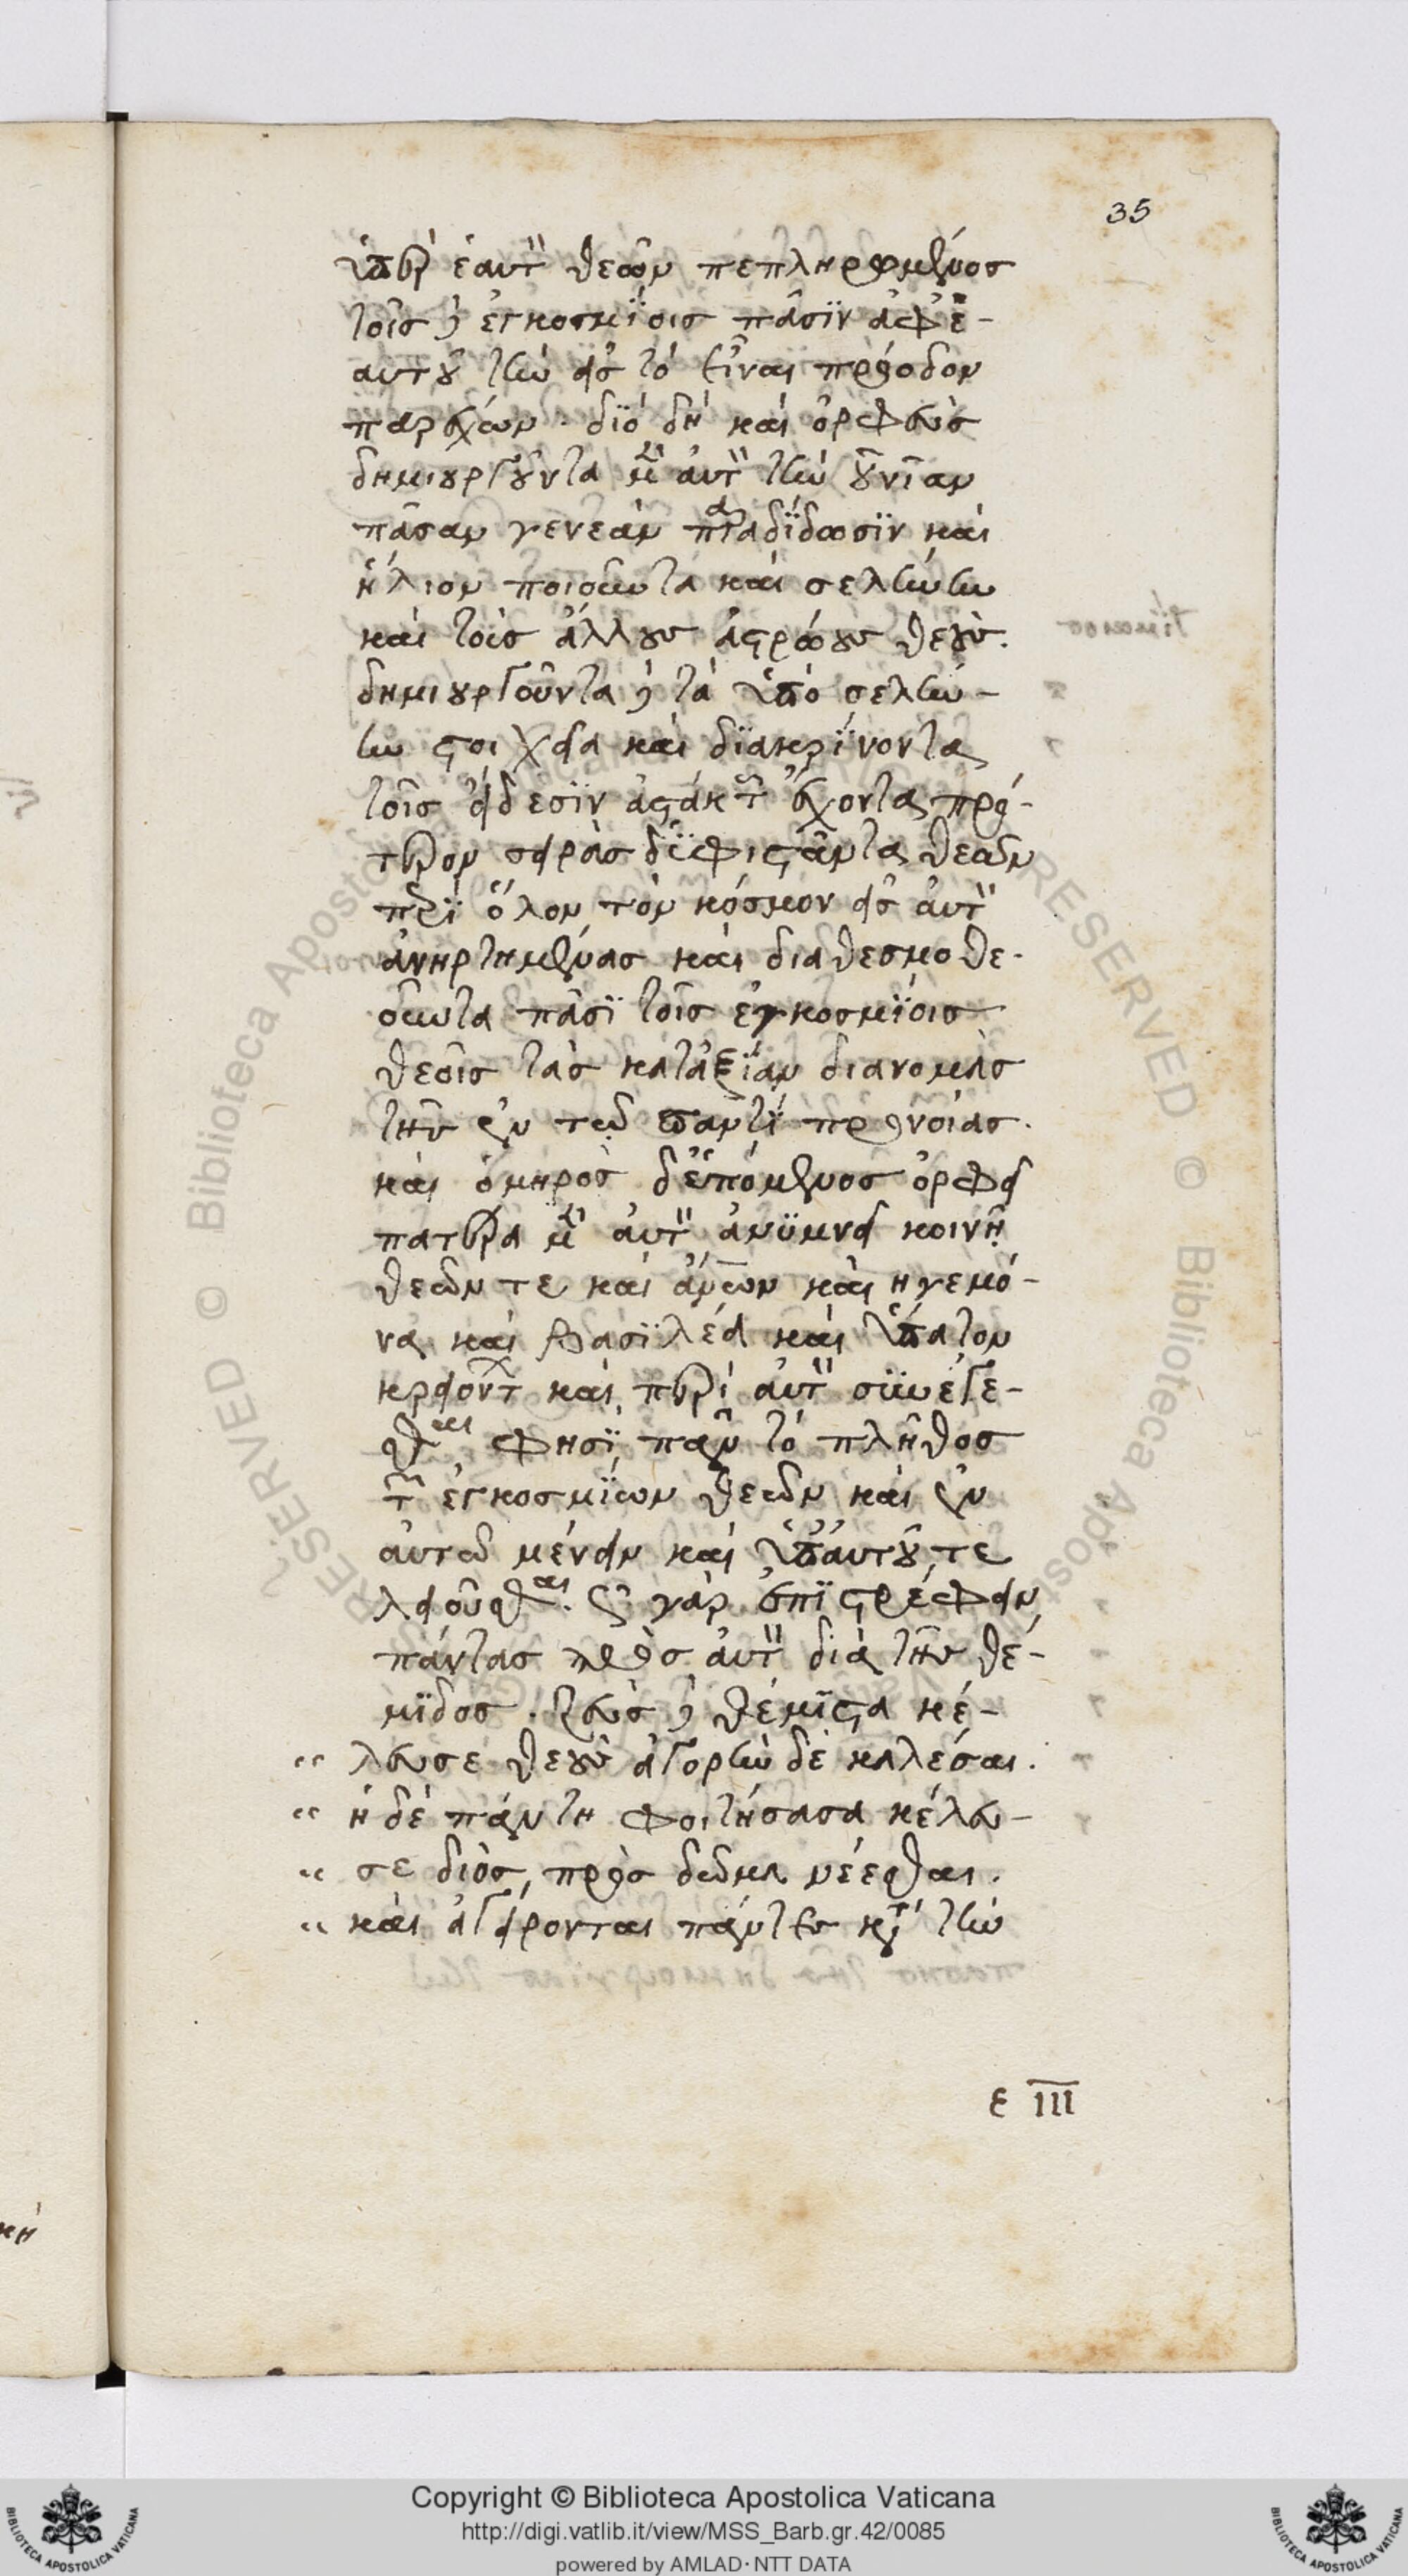 35
ὑπὲρ ἑαυτ" θεῶν πεπληρωμένος
τοῖς δὲ ἐγκοσμΐοις πᾶσϊν ἀφ' ἑ-
αυτοῦ τὴν εἰς τὸ εἶναι πρόοδον
παρέχων. διὸ δὴ καὶ ὀρφεὺς
δημιουργοῦντα μὲν αὐτ" τὴν οὐνίαν
πᾶσαν γενεὰν παραδΐδωσϊν καὶ
ἥλιον ποιοῦντα καὶ σελήνην
καὶ τοὺς ἄλλους ἀστρώους θεούς.
δημιουργοῦντα δὲ τὰ ὑπὸ σελή-
νην στοιχεῖα καὶ διακρΐνοντα
τοῖς εἴδεσϊν ἀτάκτ ἔχοντα πρό-
τερον σειρὰς δ' ἐφιστάντα θεῶν
περὶ ὅλον τὸν κόσμον εἰς αὐτ"
ἀνηρτημένας καὶ διαθεσμοθε-
τοῦντα πᾶσϊ τοῖς ἐγκοσμΐοις
θεοῖς τὰς κατἀξΐαν διανομὰς
τῆς ἐν τῷ παντὶ προνοίας.
καὶ ὅμηρος δ' ἑπόμενος ὀρφεῖ
πατέρα μὲν αὐτ" ἀνϋμνεῖ κοινῇ
θεῶν τε καὶ ἀνων καὶ ἡγεμό-
να καὶ βασϊλέα καὶ ὕπατον
κρειοντ καὶ περὶ αὐτ" συνάγε-
σθαι φησϊ πᾶν τὸ πλῆθος
τῶν ἐγκοσμΐων θεῶν καὶ ἐν
αὐτῷ μένειν καὶ ὑπ' αὐτοῦ τε
λειοῦσθαι. ὁ γὰρ ἐπϊστρέφειν
πάντας πρὸς αὐτ" διὰ τῆς θέ-
μϊδος. ζεὺς δὲ θέμϊστα κέ-
“ λευσε θεοὺς ἀγορὴν δὲ καλέσαι.
“ ἡ δὲ πάντη φοιτήσασα κέλευ-
“ σε διὸς πρὸς δῶμα νέεσθαι.
“ καὶ ἀγείρονται πάντες κατὰ τὴν
ε III
Copyright © Biblioteca Apostolica Vaticana
http://digi.vatlib.it/view/MSS_Barb.gr.42/0085
powered by AMLAD·NTT DATA